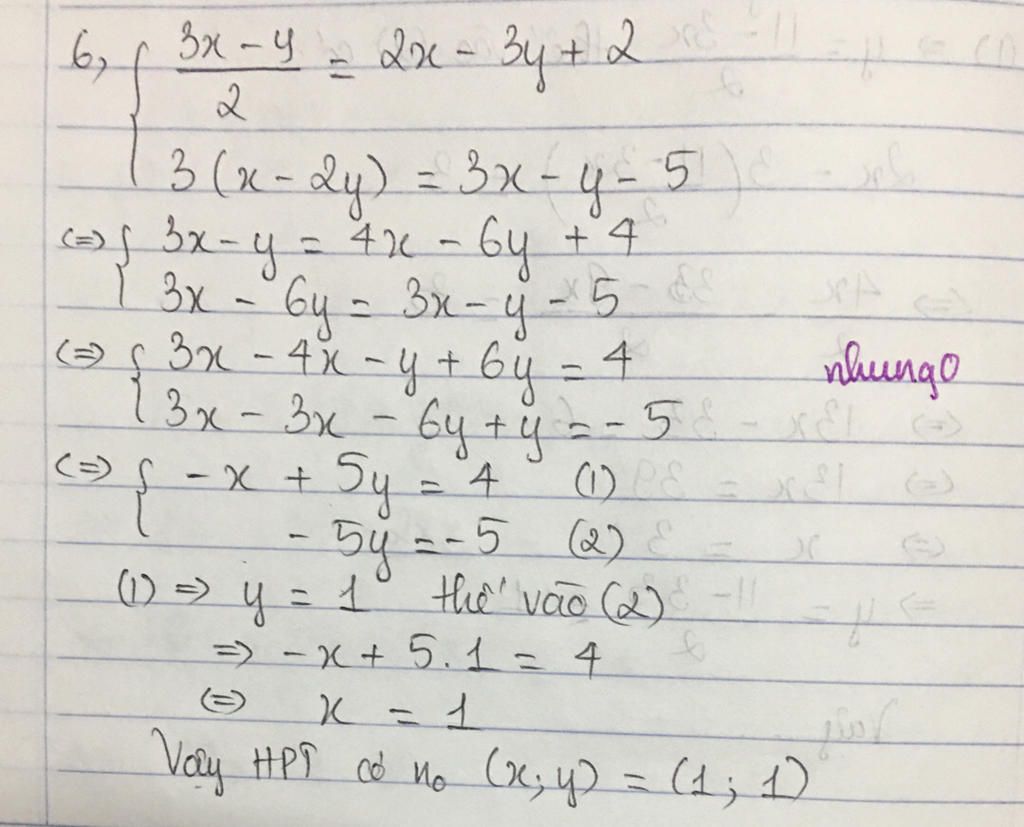 6, { (3x - y)/2 = 2x - 3y + 2
3(x - 2y) = 3x - y - 5
<=> { 3x - y = 4x - 6y + 4
3x - 6y = 3x - y - 5
<=> { 3x - 4x - y + 6y = 4
nhung0
3x - 3x - 6y + y = - 5
<=> { - x + 5y = 4 (1)
- 5y = - 5 (2)
(1) => y = 1 thế vào (2)
=> - x + 5.1 = 4
<=> x = 1
Vậy HPT có no (x; y) = (1; 1)